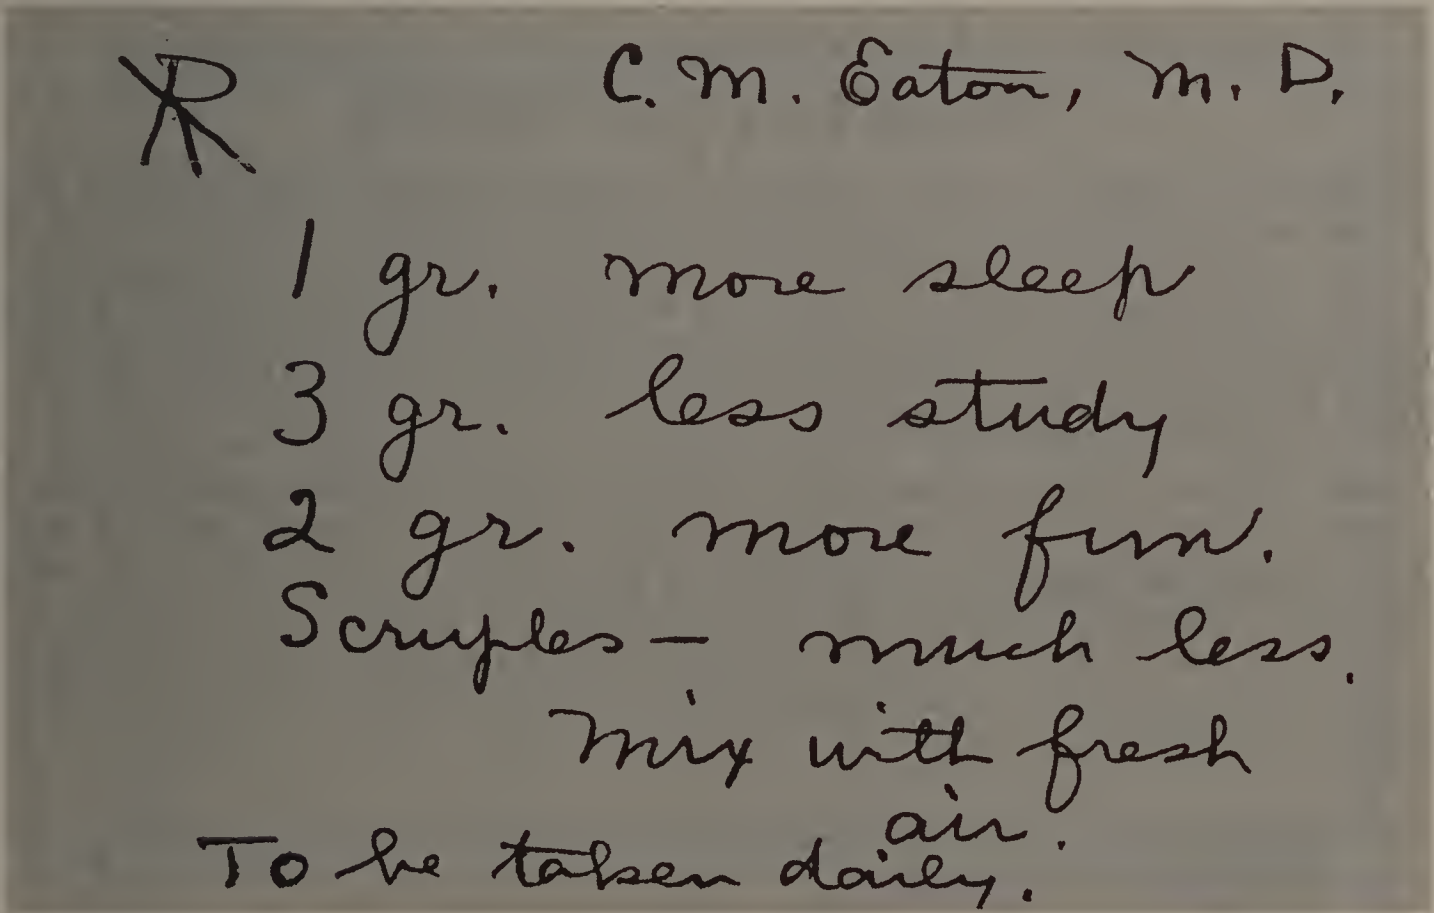 ℞ C. M. Eaton, M. D.
1 gr. more sleep
3 gr. less study
2 gr. more fun.
Scruples – much less.
Mix with fresh
air.
To be taken daily.